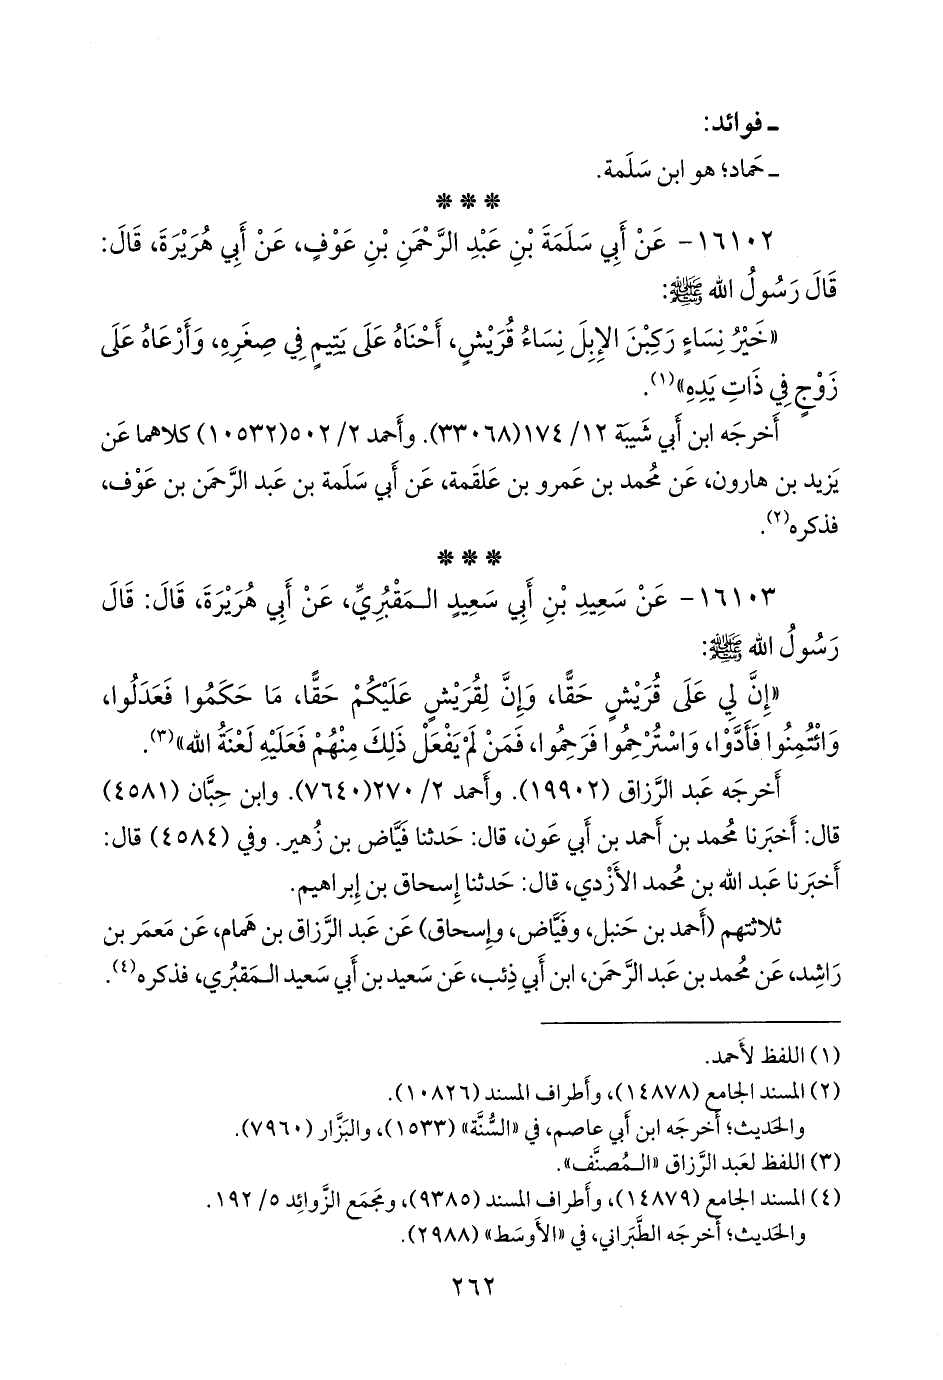 ـ فوائد:
ـ حَماد؛ هو ابن سَلَمة.
* * *
١٦١٠٢- عَنْ أَبِي سَلَمَةَ بْنِ عَبْدِ الرَّحْمَنِ بْنِ عَوْفٍ، عَنْ أَبِي هُرَيْرَةَ، قَالَ:
قَالَ رَسُولُ الله ﷺ:
«خَيْرُ نِسَاءٍ رَكِبْنَ الإِبِلَ نِسَاءُ قُرَيْشٍ، أَحْنَاهُ عَلَى يَتِيمٍ فِي صِغَرِهِ، وَأَرْعَاهُ عَلَى
زَوْجٍ فِي ذَاتِ يَدِهِ»(١).
أَخرجَه ابن أَبي شَيبَة ١٢/ ١٧٤(٣٣٠٦٨). وأَحمد ٢/ ٥٠٢(١٠٥٣٢) كلاهما عَن
يَزيد بن هارون، عَن مُحمد بن عَمرو بن عَلقمة، عَن أَبي سَلَمة بن عَبد الرَّحمَن بن عَوْف،
فذكره(٢).
* * *
١٦١٠٣- عَنْ سَعِيدِ بْنِ أَبِي سَعِيدٍ الـمَقْبُرِيِّ، عَنْ أَبِي هُرَيْرَةَ، قَالَ: قَالَ
رَسُولُ الله ﷺ:
«إِنَّ لِي عَلَى قُرَيْشٍ حَقًّا، وَإِنَّ لِقُرَيْشٍ عَلَيْكُمْ حَقًّا، مَا حَكَمُوا فَعَدَلُوا،
وَائْتُمِنُوا فَأَدَّوْا، وَاسْتُرْحِمُوا فَرَحِمُوا، فَمَنْ لَمْ يَفْعَلْ ذَلِكَ مِنْهُمْ فَعَلَيْهِ لَعْنَةُ الله»(٣).
أَخرجَه عَبد الرَّزاق (١٩٩٠٢). وأَحمد ٢/ ٢٧٠(٧٦٤٠). وابن حِبَّان (٤٥٨١)
قال: أَخبَرنا مُحمد بن أَحمد بن أَبي عَون، قال: حَدثنا فَيَّاض بن زُهير. وفي (٤٥٨٤) قال:
أَخبَرنا عَبد الله بن مُحمد الأَزْدي، قال: حَدثنا إِسحاق بن إِبراهيم.
ثلاثتهم (أَحمد بن حَنبل، وفَيَّاض، وإِسحاق) عَن عَبد الرَّزاق بن هَمام، عَن مَعمَر بن
رَاشِد، عَن مُحمد بن عَبد الرَّحمَن، ابن أَبي ذِئب، عَن سَعيد بن أَبي سَعيد الـمَقبُري، فذكره(٤).
(١) اللفظ لأَحمد.
(٢) المسند الجامع (١٤٨٧٨)، وأَطراف المسند (١٠٨٢٦).
والحَديث؛ أَخرجَه ابن أَبي عاصم، في «السُّنَّة» (١٥٣٣)، والبَزَّار (٧٩٦٠).
(٣) اللفظ لعَبد الرَّزاق «الـمُصنَّف».
(٤) المسند الجامع (١٤٨٧٩)، وأَطراف المسند (٩٣٨٥)، ومَجمَع الزَّوائِد ٥/ ١٩٢.
والحَديث؛ أَخرجَه الطَّبَراني، في «الأَوسَط» (٢٩٨٨).
٢٦٢